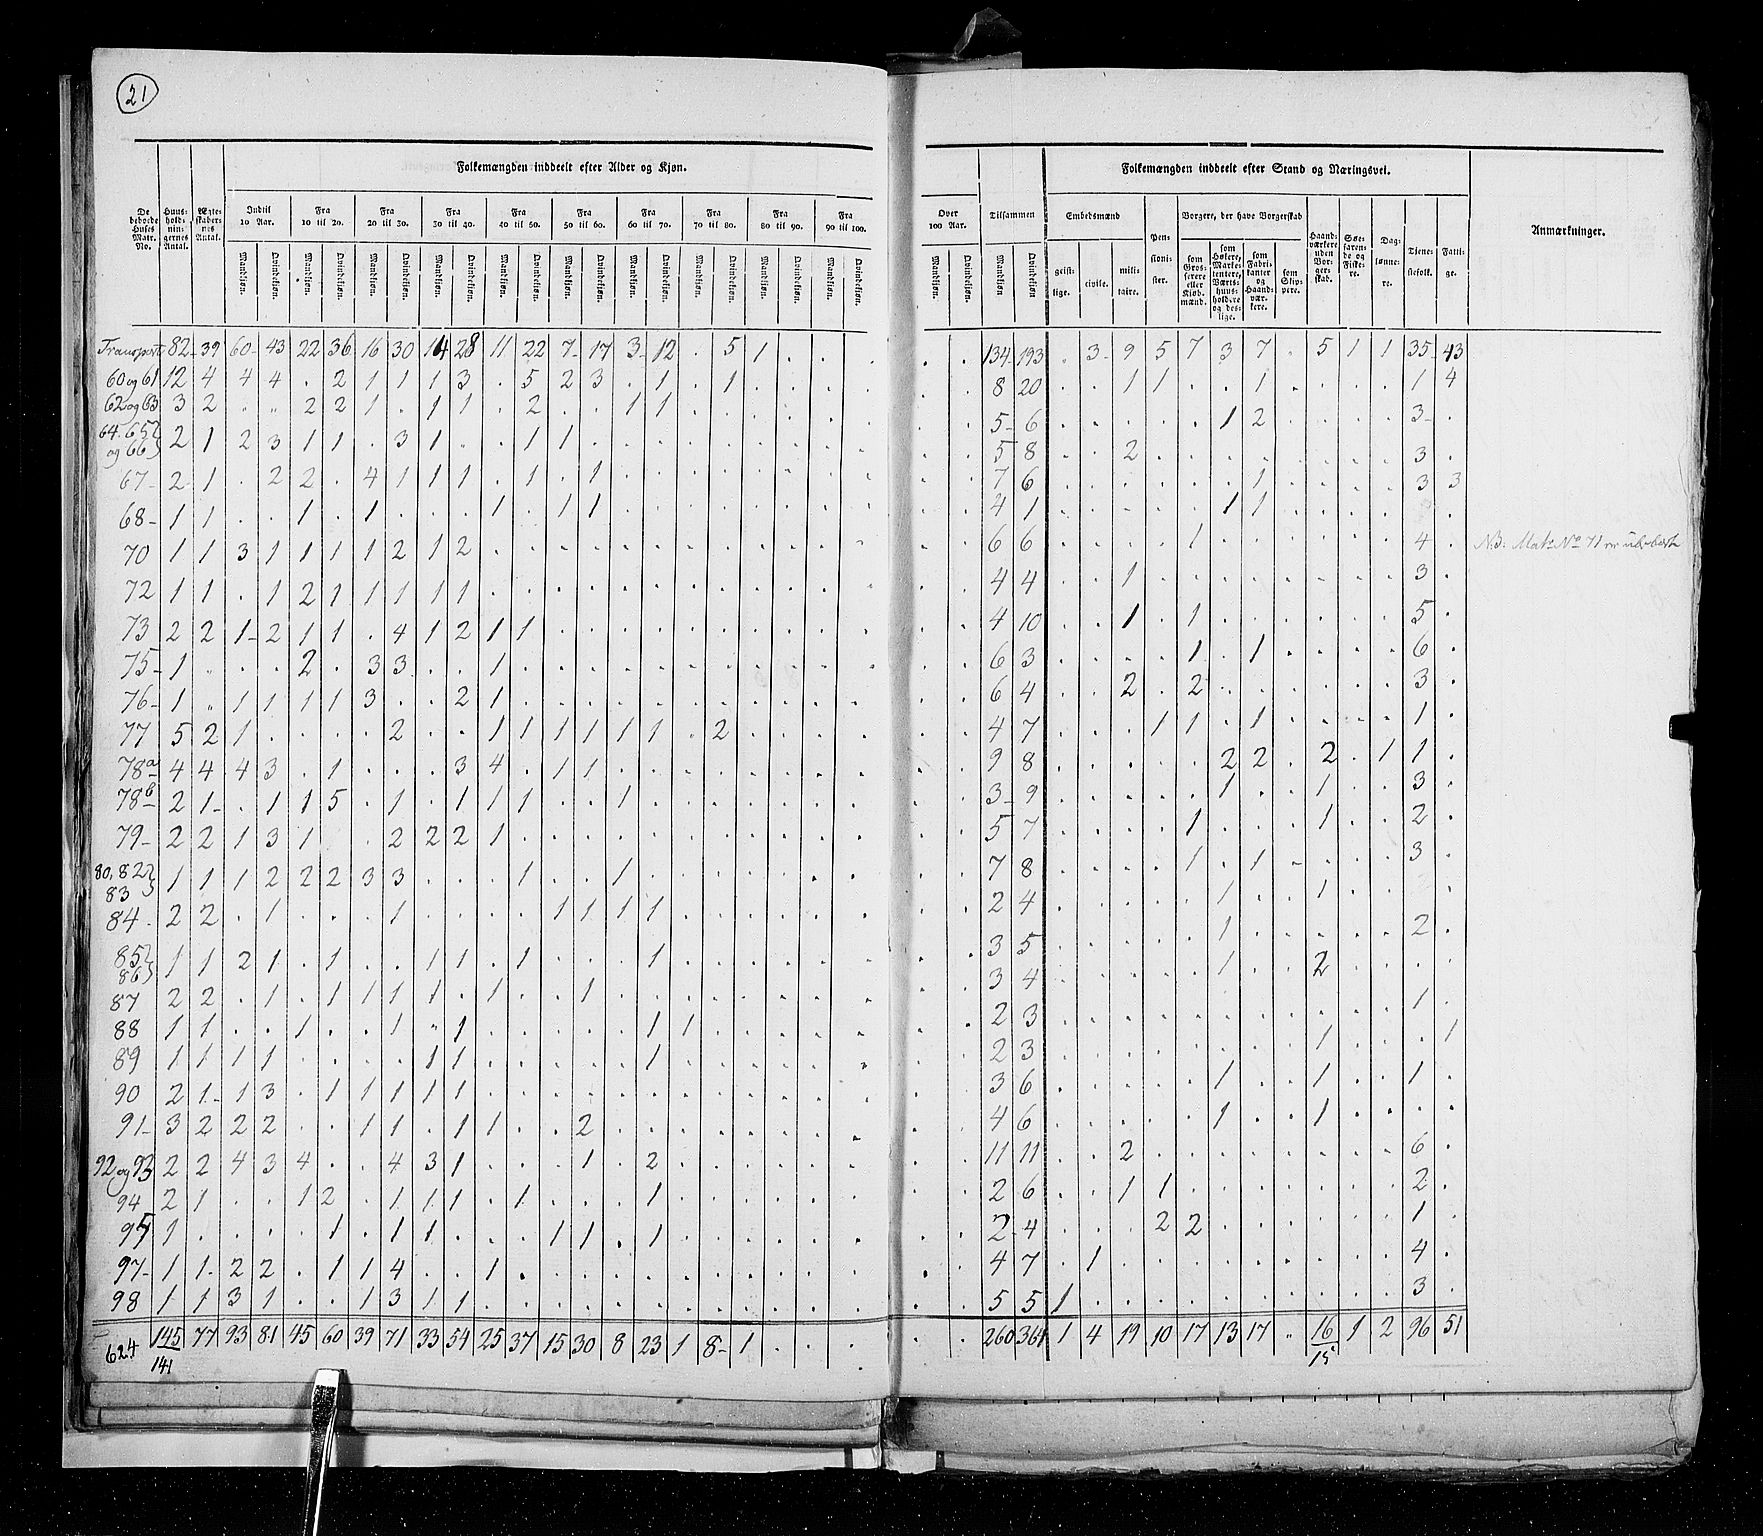 21
Folkemængden inddeelt efter Alder og Kjøn.
De beboede Huses Matr. No. | Huus-hold-nin-gernes Antal. | Ægte-skaber-nes Antal. | Indtil 10 Aar. | Fra 10 til 20. | Fra 20 til 30. | Fra 30 til 40. | Fra 40 til 50. | Fra 50 til 60. | Fra 60 til 70. | Fra 70 til 80. | Fra 80 til 90. | Fra 90 til 100.
Mandkjøn. Qvindekjøn. Mandkjøn. Qvindekjøn. Mandkjøn. Qvindekjøn. Mandkjøn. Qvindekjøn. Mandkjøn. Qvindekjøn. Mandkjøn. Qvindekjøn. Mandkjøn. Qvindekjøn. Mandkjøn. Qvindekjøn. Mandkjøn. Qvindekjøn. Mandkjøn. Qvindekjøn.
Transport 82 39 60 43 22 36 16 30 14 28 11 22 7 17 3 12 . 5 1 . . .
60 og 61 12 4 4 4 . 2 1 1 1 3 . 5 2 3 . 1 . 1 . . . .
62 og 63 3 2 " " 2 2 1 . 1 1 . 2 . . 1 1 . . . . . .
64. 65 og 66 2 1 2 3 1 1 . 3 1 . . 1 1 . . . . . . . . .
67 2 1 . 2 2 . 4 1 1 1 . 1 . 1 . . . . . . . .
68 1 1 . . 1 . 1 . . . 1 . 1 1 . . . . . . . .
70 1 1 3 1 1 1 1 2 1 2 . . . . . . . . . . . .
72 1 1 . 1 2 1 1 1 1 1 . . . . . . . . . . . .
73 2 2 1 2 1 1 . 4 1 2 1 1 . . . . . . . . . .
75 1 . . . 2 . 3 3 . . 1 . . . . . . . . . . .
76 1 " 1 1 1 1 3 . . 2 1 . . . . . . . . . . .
77 5 2 1 . . . . 2 . . 1 1 1 1 1 1 . 2 . . . .
78a 4 4 4 3 . 1 . . . 3 4 . 1 1 . . . . . . . .
78b 2 1 . 1 1 5 . 1 . 1 1 1 . . 1 . . . . . . .
79 2 2 1 3 1 . . 2 2 2 1 . . . . . . . . . . .
80, 82 83 1 1 1 2 2 2 3 3 . . . 1 . . 1 . . . . . . .
84 2 2 . 1 . . . 1 . . . . 1 1 1 1 . . . . . .
85 86 1 1 2 1 . 1 . . 1 1 . 1 . . . 1 . . . . . .
87 2 2 . 1 . 1 1 1 1 . 1 . . 1 . . . . . . . .
88 1 1 . . 1 . . 1 " 1 . . . . . 1 1 . . . . .
89 1 1 1 1 . . . . 1 1 . . . . . 1 . . . . . .
90 2 1 1 3 . 1 1 1 1 1 . . . . . . . . . . . .
91 3 2 2 2 . . 1 1 . 1 1 . . 2 . . . . . . . .
92 og 93 2 2 4 3 4 . . 4 3 1 . . . 1 . 2 . . . . . .
94 2 1 . . 1 2 . 1 1 1 . 1 . . . 1 . . . . . .
95 1 . . . . 1 . 1 1 . . . 1 1 . 1 . . . . . .
97 1 1 2 2 . 1 1 4 . . 1 . . . . . . . . . . .
98 1 1 3 1 . . 1 3 1 1 . . . . . . . . . . . .
624 145 77 93 81 45 60 39 71 33 54 25 37 15 30 8 23 1 8 1 . . .
141
Folkemængden inddeelt efter Stand og Næringsvei.
Over 100 Aar. | Tilsammen | Embedsmænd | Pen-sioni-ster. | Borgere, der have Borgerskab | Haand-værkere uden Bor-ger-skab. | Søe-faren-de og Fiske-re. | Dag-lønne-re. | Tjene-stefolk. | Fatti-ge. | Anmærkninger.
Mandkjøn. Qvindekjøn. Mandkjøn. Qvindekjøn. geist-lige. civile. mili-taire. som Gros-serere eller Kjøb-mænd. som Høkere, Marke-tentere, Værts-huus-holdere og des-lige. som Fabri-kanter og Haand-vær-kere. som Skip-pere.
. . 134 193 " 3 9 5 7 3 7 " 5 1 1 35 43
. . 8 20 . . 1 1 . . 1 . . . . 1 4
. . 5 6 . . . . . 1 2 . . . . 3 .
. . 5 8 . . 2 . . . . . . . . 3 .
. . 7 6 . . . . . . 1 . . . . 3 3
. . 4 1 . . . . . 1 1 . . . . . .
. . 6 6 . . . . 1 . . . . . . 4 . N.B. Matr No 71 er
. . 4 4 . . 1 . . . . . . . . 3 .
. . 4 10 . . 1 . 1 . . . . . . 5 .
. . 6 3 . . . . 1 . 1 . . . . 6 .
. . 6 4 . . 2 . 2 . . . . . . 3 .
. . 4 7 . . . 1 1 . 1 . . . . 1 .
. . 9 8 . . . . . 2 2 . 2 . 1 1 .
. . 3 9 . . . . . 1 . . 1 . . 3 .
. . 5 7 . . . . 1 . . . 1 . . 2 .
. . 7 8 . . . . 1 . 1 . . . . 3 .
. . 2 4 . . . . . 1 . . 1 . . . .
. . 3 5 . . . . . 1 . . . . . 2 .
. . 3 4 . . . . . 1 . . 2 . . . .
. . 2 3 . . . . . . . . . . . 1 .
. . 2 3 . . . . . . . . 1 . . . 1
. . 3 6 . . . . . 1 . . 1 . . 1 .
. . 4 6 . . . . . 1 . . 1 . . . .
. . 11 11 . . 2 . . . . . . . . 6 .
. . 2 6 . . 1 1 . . . . . . . 2 .
. . 2 4 . . . 2 2 . . . . . . 1 .
. . 4 7 . 1 . . . . . . . . . 4 .
. . 5 5 1 . . . . . . . . . . 3 .
. . 260 364 1 4 19 10 17 13 17 " 16 1 2 96 51
15